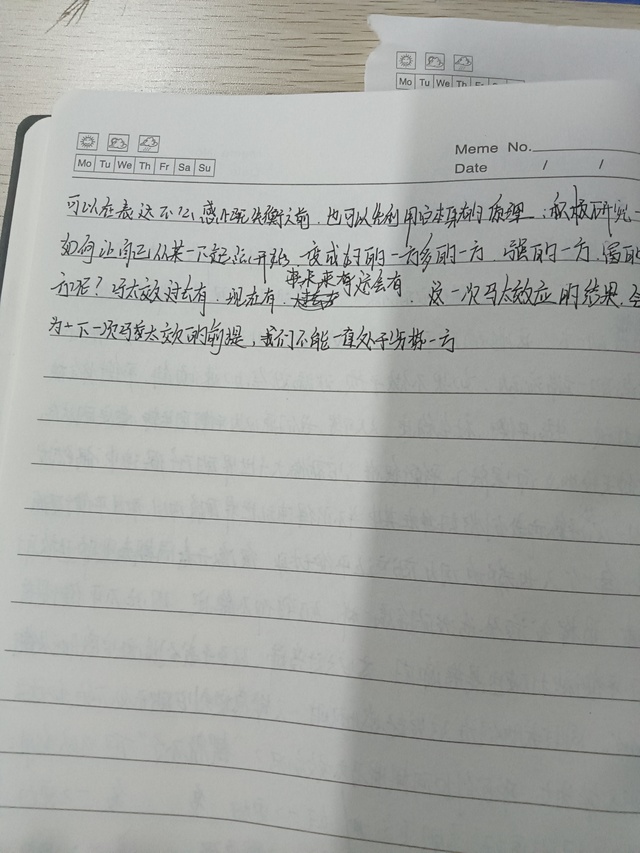 Mo Tu We Th Fr Sa
Mo Tu We Th Fr Sa Su
Meme No.
Date / /
可以在表达不公,感叹失衡之前,也可以先利用它本身的原理:积极研究一
如何让自己从某一下起点开始,变成好的一方多的一方,强的一方,富的
方呢?马太效应过去有,现在有,未来有还会有,这一次马太效应的结果,
为十下一次马太效应的前提,我们不能一直处于劣势一方